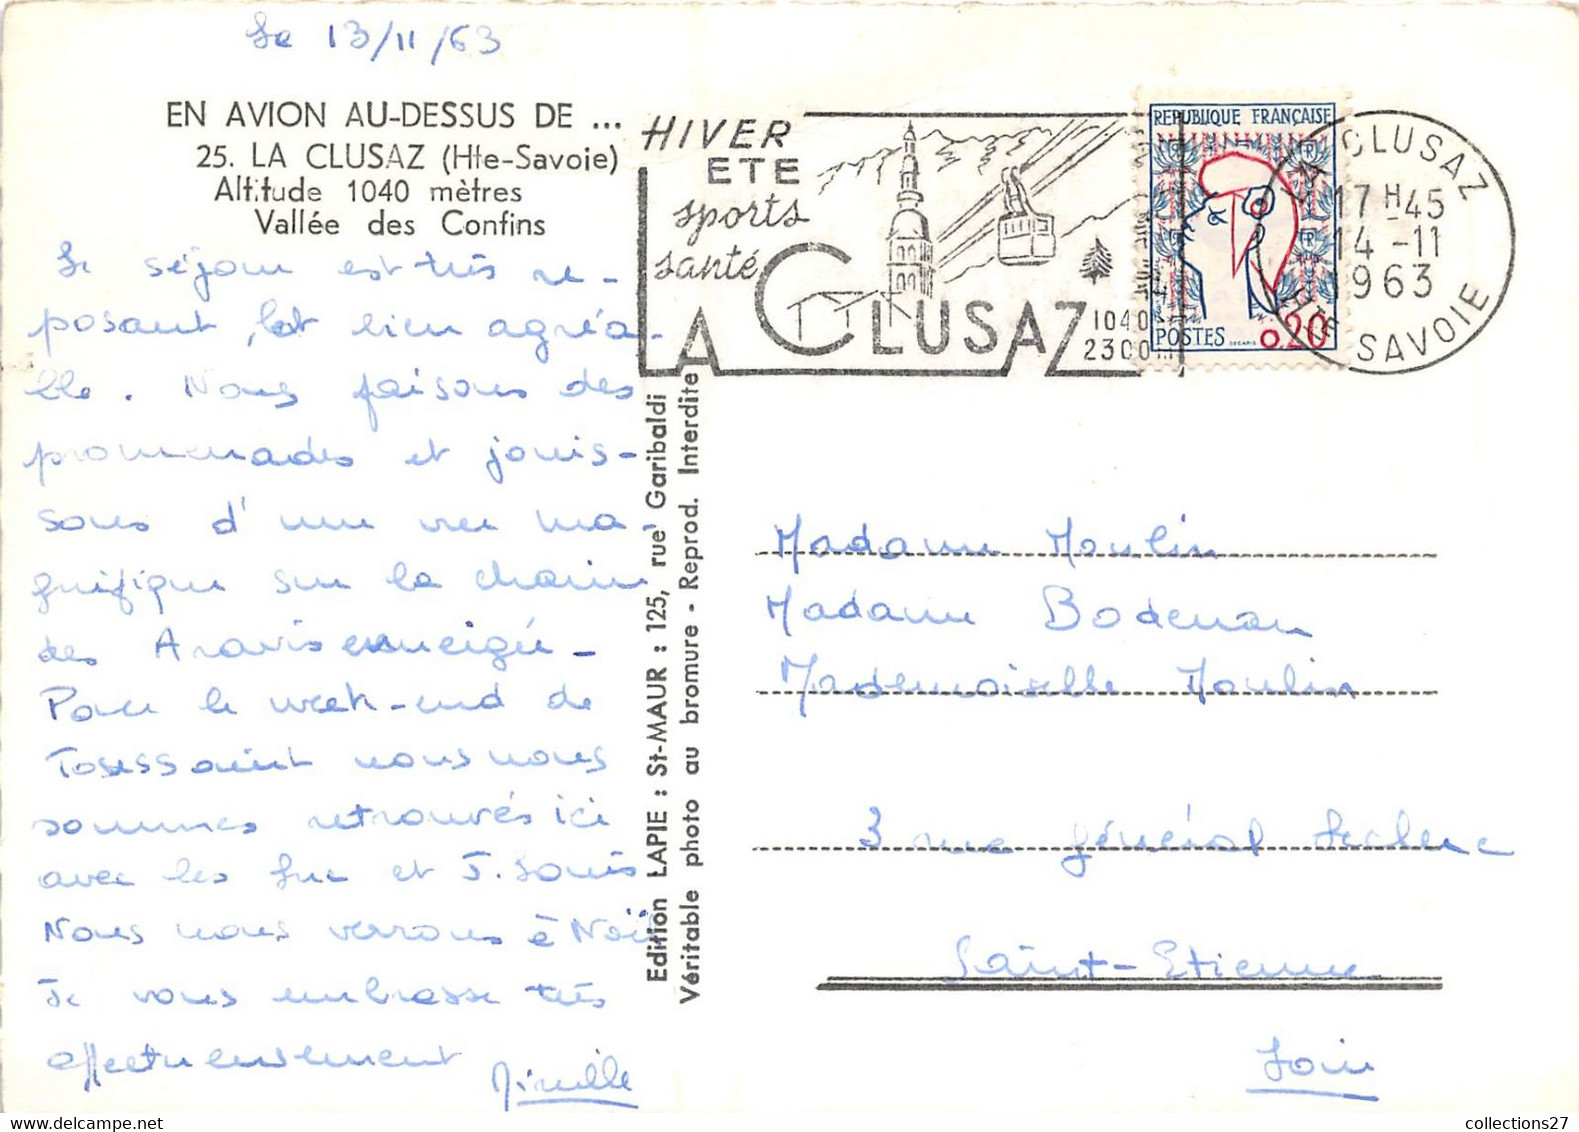 Le 13/11/63
EN AVION AU-DESSUS DE ...
25. LA CLUSAZ (Hte-Savoie)
Altitude 1040 mètres
Vallée des Confins
Le séjour est très re-
posant, et bien agréa-
ble. Nous faisons des
promenades et jouis-
sons d'une vue ma-
gnifique sur la chaine
des Aravis enneigée -
Pour le week-end de
Toussaint nous nous
sommes retrouvés ici
avec les Luc et J. Louis
Nous nous verrons à Noël
Je vous embrasse très
affectueusement
Edition LAPIE : St-MAUR : 125, rue Garibaldi
Véritable photo au bromure - Reprod. Interdite
HIVER
ETE
sports
santé
LA CLUSAZ
1040
2300 m
REPUBLIQUE FRANÇAISE
POSTES
DECARIS
0,20
LA CLUSAZ
17 H 45
14 -11
1963
HTE SAVOIE
Madame Moulin
Madame Bodenan
Mademoiselle Moulin
3 rue général Leclerc
Saint-Etienne
Loire
collections27